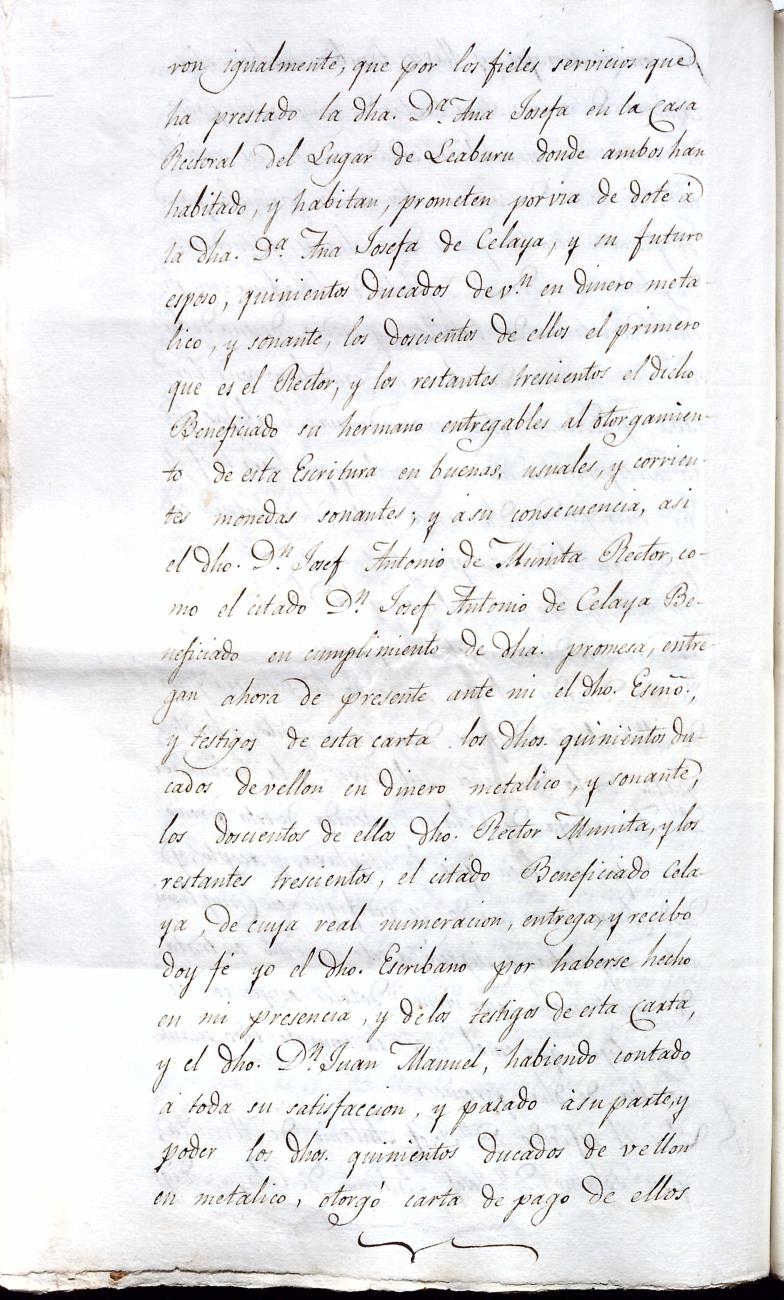 ron igualmente, que por los fieles servicios que
ha prestado la dha. D.ª Ana Josefa en la Casa
Rectoral del Lugar de Leaburu donde ambos han
habitado, y habitan, prometen por via de dote à
la dha. D.ª Ana Josefa de Celaya, y su futuro
esposo, quinientos ducados de v.n en dinero meta-
lico, y sonante, los doscientos de ellos el primero
que es el Rector, y los restantes trescientos el dicho
Beneficiado su hermano entregables al otorgamien-
to de esta Escritura en buenas, usuales, y corrien-
tes monedas sonantes; y àsu consecuencia, asi
el dho. D.n Josef Antonio de Munita Rector, co-
mo el citado D.n Josef Antonio de Celaya Be-
neficiado en cumplimiento de dha. promesa, entre-
gan ahora de presente ante mi el dho. Esc̃ño.,
y testigos de esta carta los dhos. quinientos du-
cados de vellon en dinero metalico, y sonante,
los doscientos de ellos dho. Rector Munita, y los
restantes trescientos, el citado Beneficiado Cela-
ya, de cuya real numeracion, entrega, y recibo
doy fé yo el dho. Escribano por haberse hecho
en mi presencia, y delos testigos de esta Carta,
y el dho. D.n Juan Manuel, habiendo contado
à toda su satisfaccion, y pasado àsu parte, y
poder los dhos. quinientos ducados de vellon
en metalico, otorgó carta de pago de ellos